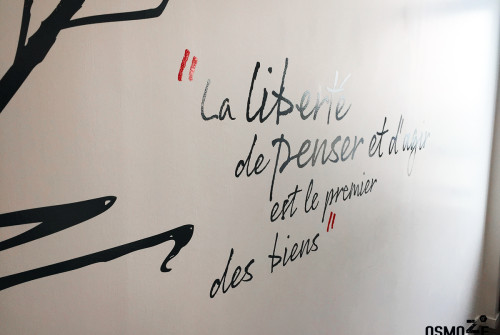 "La liberté
de penser et d'agir
est le premier
des biens"